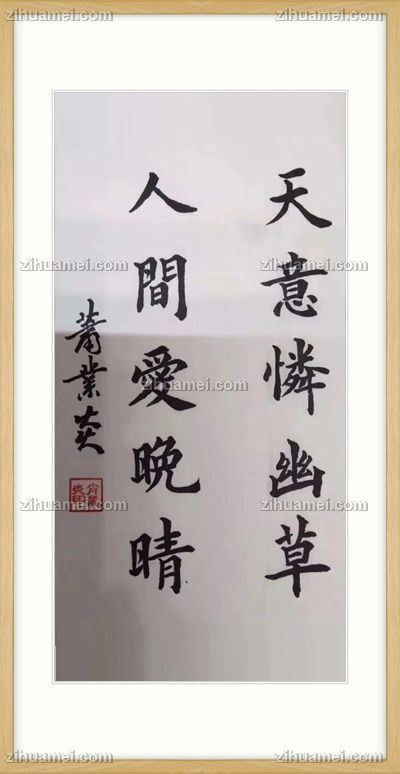 zihuamei.com zihuamei.com
天意憐幽草
人間愛晚晴
蕭業炎
zihuamei.com zihuamei.com
zihuamei.com
zihuamei.com zihuamei.com
zihuamei.com zihuamei.com